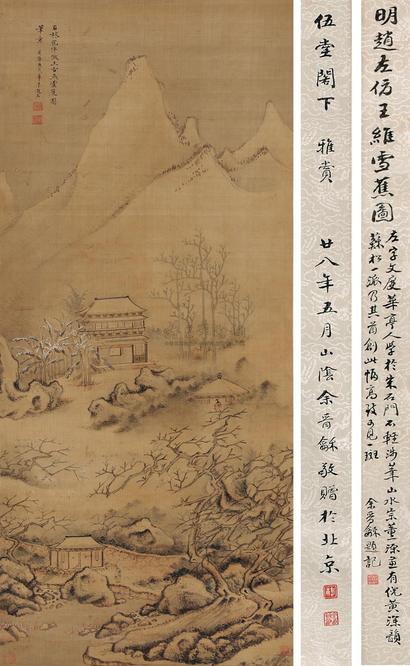 明趙左仿王維雪蕉圖
左字文度華亭人學於宋石門不輕浮筆山水宗董源兼有倪黃深韻
蘇松一派乃其首創此幅高致可見一斑
余晉龢題記
伍堂閣下
雅賞
廿八年五月山陰余晉龢敬贈於北京
筆意